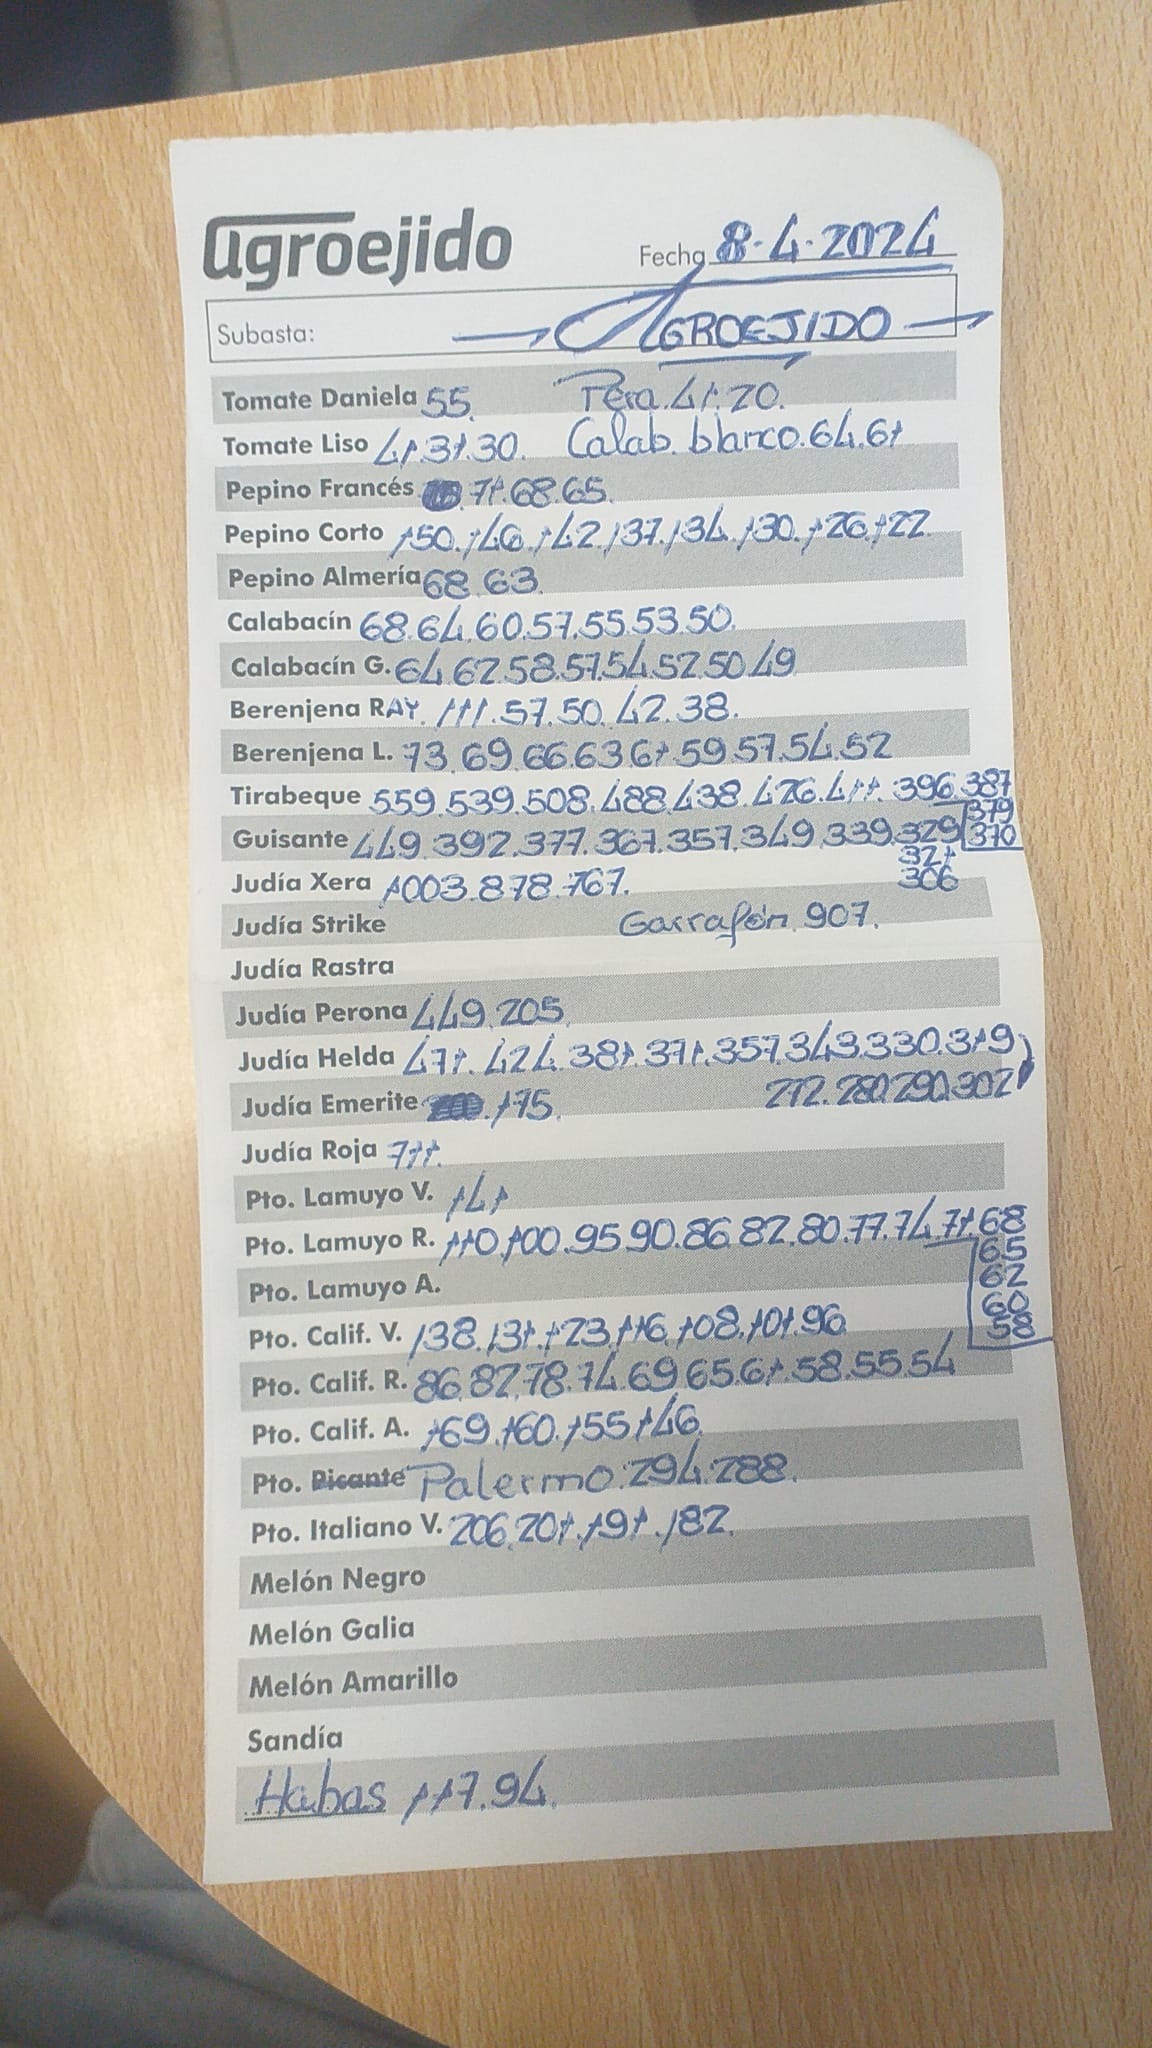 agroejido
Fecha 8-4-2024
Subasta: AGROEJIDO
Tomate Daniela 55. Pera.41.20.
Tomate Liso 41.31.30. Calab. blanco.64.61
Pepino Francés 71.68.65.
Pepino Corto 150.146.142.137.134.130.126.122.
Pepino Almería 68.63.
Calabacín 68.64.60.57.55.53.50.
Calabacín G. 64.62.58.57.54.52.50.49
Berenjena RAY. 111.57.50.42.38.
Berenjena L. 73.69.66.63.61.59.57.54.52
Tirabeque 559.539.508.488.438.426.411.396.387
379
370
Guisante 449.392.377.367.357.349.339.329
321
306
Judía Xera 1003.878.767.
Judía Strike Garrafón.907.
Judía Rastra
Judía Perona 449.205.
Judía Helda 471.424.381.371.357.343.330.319
272.280.290.302
Judía Emerite 175.
Judía Roja 711.
Pto. Lamuyo V. 141
Pto. Lamuyo R. 110.100.95.90.86.82.80.77.74.71.68
65
62
60
58
Pto. Lamuyo A.
Pto. Calif. V. 138.131.123.116.108.101.96.
Pto. Calif. R. 86.82.78.74.69.65.61.58.55.54
Pto. Calif. A. 169.160.155.146.
Pto. Picante Palermo.294.288.
Pto. Italiano V. 206.201.191.182.
Melón Negro
Melón Galia
Melón Amarillo
Sandía
Habas 117.94.